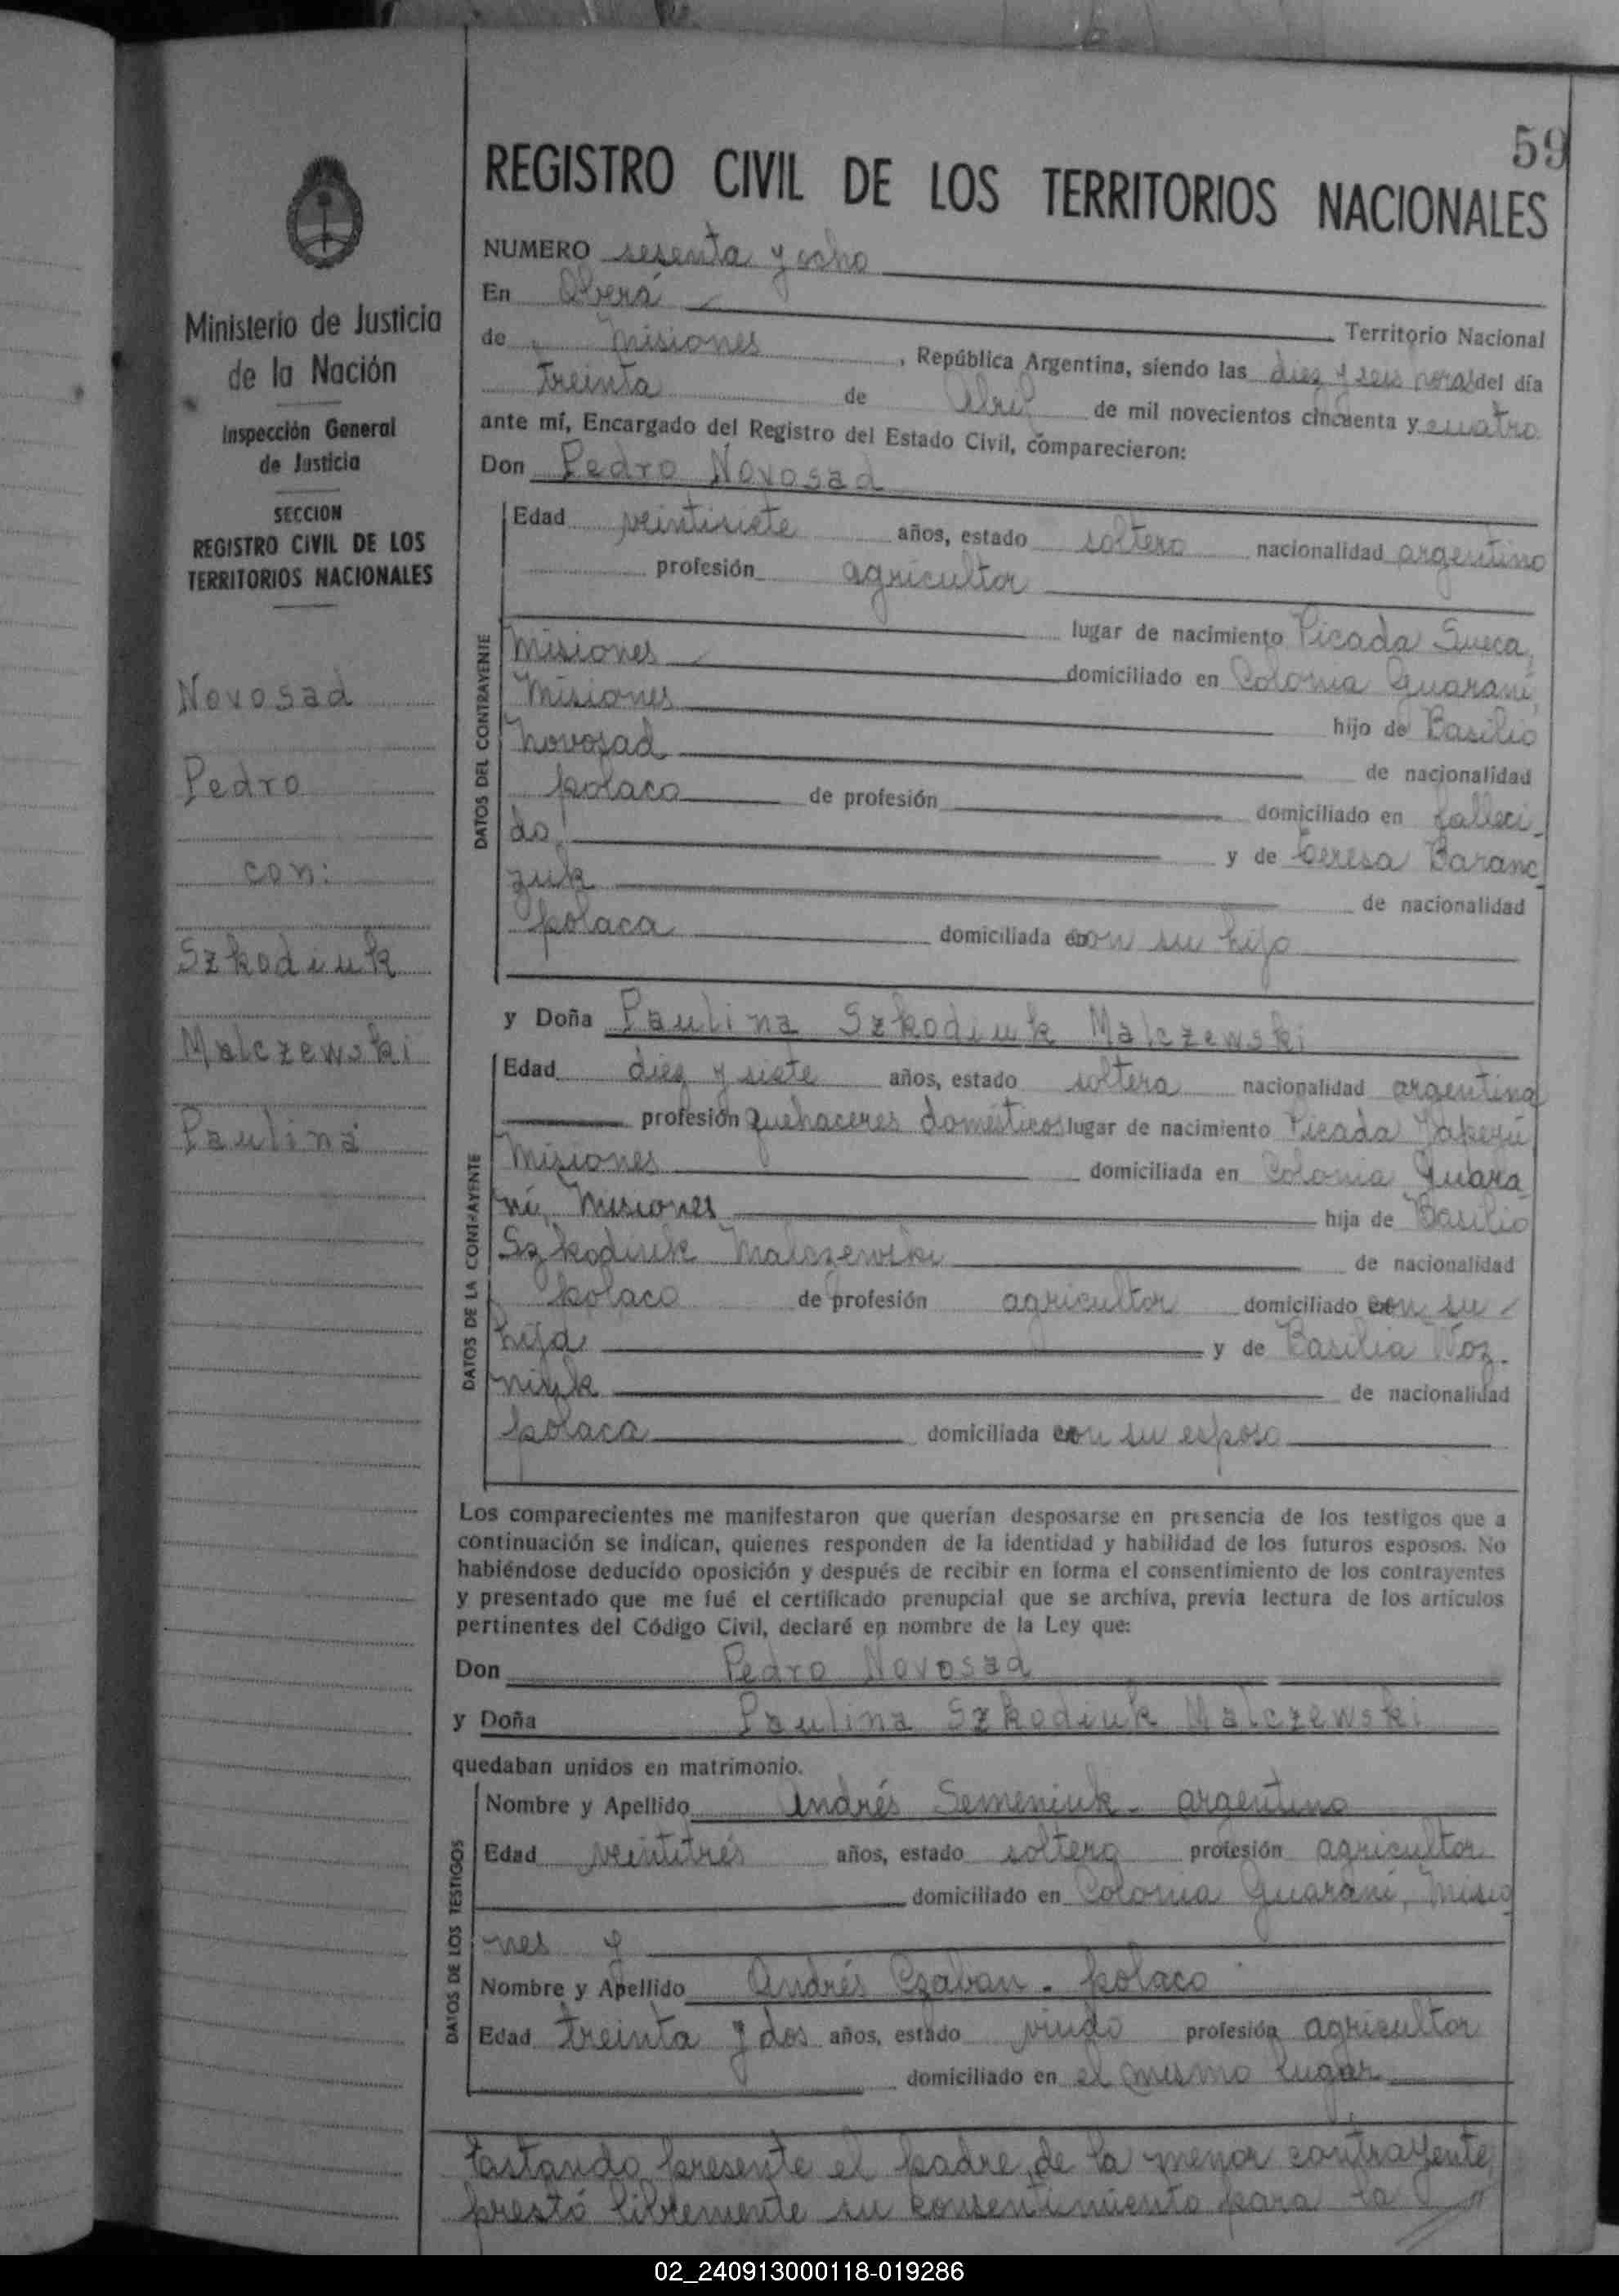 59
REGISTRO CIVIL DE LOS TERRITORIOS NACIONALES
Ministerio de Justicia
de la Nación
Inspección General
de Justicia
SECCION
REGISTRO CIVIL DE LOS
TERRITORIOS NACIONALES
Novosad
Pedro
con:
Szkodiuk
Malczewski
Paulina
NUMERO sesenta y ocho
En Oberá Territorio Nacional
de Misiones, República Argentina, siendo las diez y seis horas del día
treinta de Abril de mil novecientos cincuenta y cuatro
ante mí, Encargado del Registro del Estado Civil, comparecieron:
Don Pedro Novosad
DATOS DEL CONTRAYENTE
Edad veintisiete años, estado soltero nacionalidad argentino
profesión agricultor
lugar de nacimiento Picada Sueca,
Misiones domiciliado en Colonia Guaraní,
Misiones hijo de Basilio
Novosad de nacionalidad
polaco de profesión domiciliado en falleci-
do! y de Teresa Baranc-
zuk de nacionalidad
polaca domiciliada con su hijo
y Doña Paulina Szkodiuk Malczewski
DATOS DE LA CONTRAYENTE
Edad diez y siete años, estado soltera nacionalidad argentina
profesión quehaceres domésticos lugar de nacimiento Picada Yapeyú
Misiones domiciliada en Colonia Guara-
ní, Misiones hija de Basilio
Szkodiuk Malczewski de nacionalidad
polaco de profesión agricultor domiciliado con su
hija y de Basilia Woz-
niuk de nacionalidad
polaca domiciliada con su esposo
Los comparecientes me manifestaron que querían desposarse en presencia de los testigos que a
continuación se indican, quienes responden de la identidad y habilidad de los futuros esposos. No
habiéndose deducido oposición y después de recibir en forma el consentimiento de los contrayentes
y presentado que me fué el certificado prenupcial que se archiva, previa lectura de los artículos
pertinentes del Código Civil, declaré en nombre de la Ley que:
Don Pedro Novosad
y Doña Paulina Szkodiuk Malczewski
quedaban unidos en matrimonio.
DATOS DE LOS TESTIGOS
Nombre y Apellido Andrés Semeniuk - argentino
Edad veintitrés años, estado soltero profesión agricultor
domiciliado en Colonia Guaraní, Misio-
nes y
Nombre y Apellido Andrés Czaban - polaco
Edad treinta y dos años, estado viudo profesión agricultor
domiciliado en el mismo lugar
Estando presente el padre de la menor contrayente,
prestó libremente su consentimiento para la
02_240913000118-019286